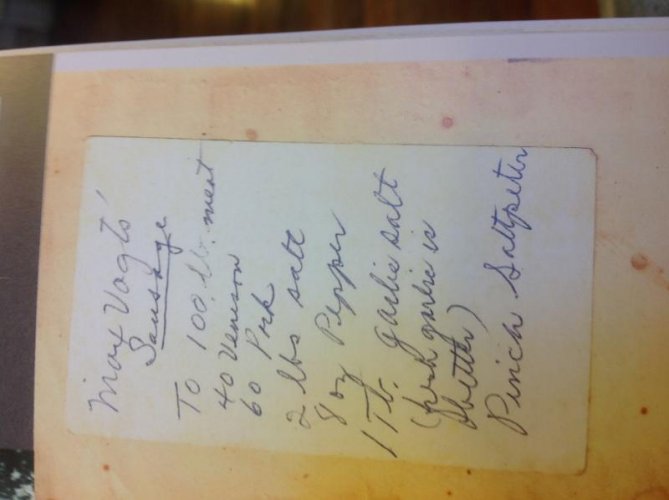 Max Vogts'
Sausage
To 100 lb. meat
40 Venison
60 Prk
2 lbs salt
8 oz Pepper
1 Tb. garlic salt
(fresh garlic is
better)
Pinch Saltpeter